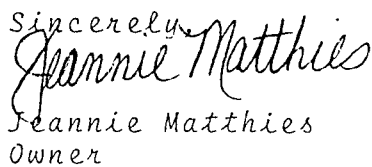 Sincerely,
Jeannie Matthies
Jeannie Matthies
Owner